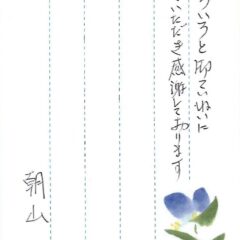 ろいろと御ていねいに
いただき感謝しております
朝山